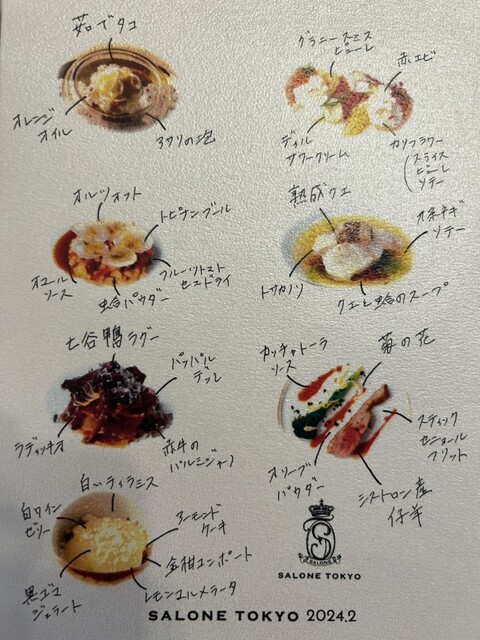 茹でタコ
オレンジ
オイル
アサリの泡
グラニースミス
ピューレ
赤エビ
ディル
サワークリーム
カリフラワー
スライス
ピューレ
ソテー
オルツォット
トピナンブール
オマール
ソース
蛤パウダー
フルーツトマト
セミドライ
熟成クエ
オネギ
ソテー
トサカノリ
クエと蛤のスープ
七谷鴨ラグー
パッパル
デッレ
ラディッキオ
赤牛の
パルミジャーノ
カッチャトーラ
ソース
菊の花
スティック
セニョール
フリット
オリーブ
パウダー
シストロン産
仔羊
白いティラミス
白ワイン
ゼリー
アーモンド
ケーキ
金柑コンポート
黒ゴマ
ジェラート
レモンマルメラータ
SALONE
SALONE TOKYO
SALONE TOKYO 2024.2